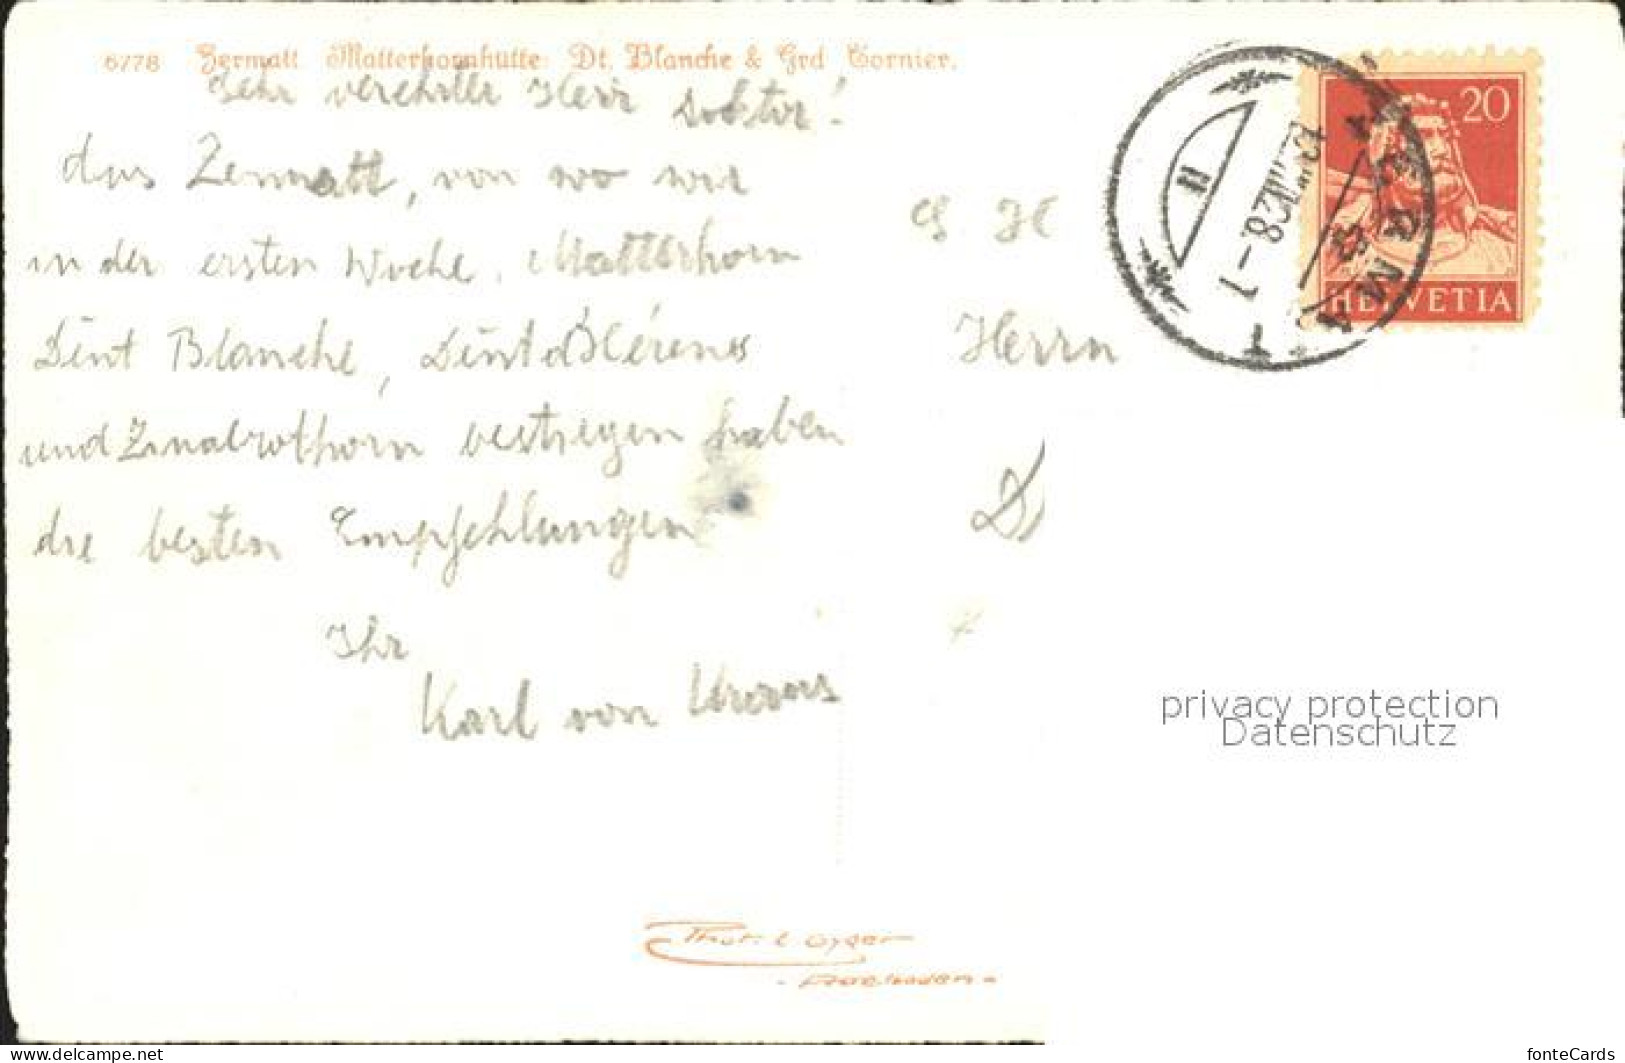 6778 Zermatt Matterhornhütte Dt. Blanche & Grd Cornier.
Sehr verehrter Herr Doktor!
das Zermatt, von wo wir
in der ersten Woche, Matterhorn
Dent Blanche, Dent d'Hérens
und Zinalrothorn bestiegen haben
die besten Empfehlungen
Ihr
Karl von
S. H
Herrn
D
ZERMATT
II
VIII 28-1
20
HELVETIA
privacy protection
Datenschutz
Phot. E. Gyger
- Adelboden -
www.delcampe.net/nostalgie
fonteCards